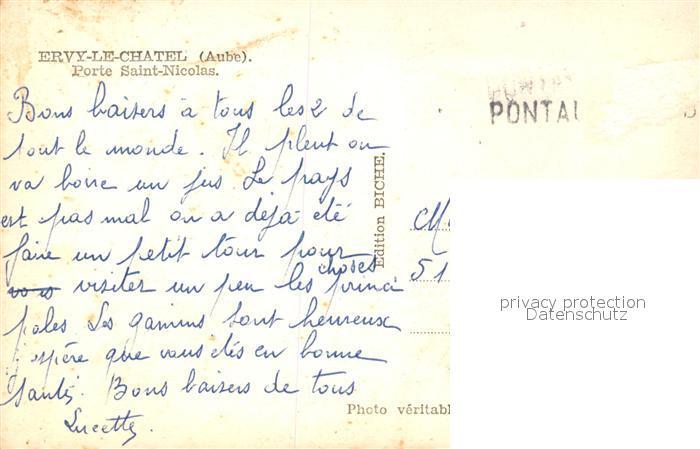 ERVY-LE-CHATEL (Aube).
Porte Saint-Nicolas.
Bons baisers à tous les 2 de
tout le monde. Il pleut on
va boire un jus. Le pays
est pas mal on a déjà été
faire un petit tour pour
visiter un peu les choses princi
pales Les gamins sont heureux
j'espère que vous êtes en bonne
santé. Bons baisers de tous
Lucette.
Edition BICHE.
PONTAI
51
Photo véritabl
privacy protection
Datenschutz